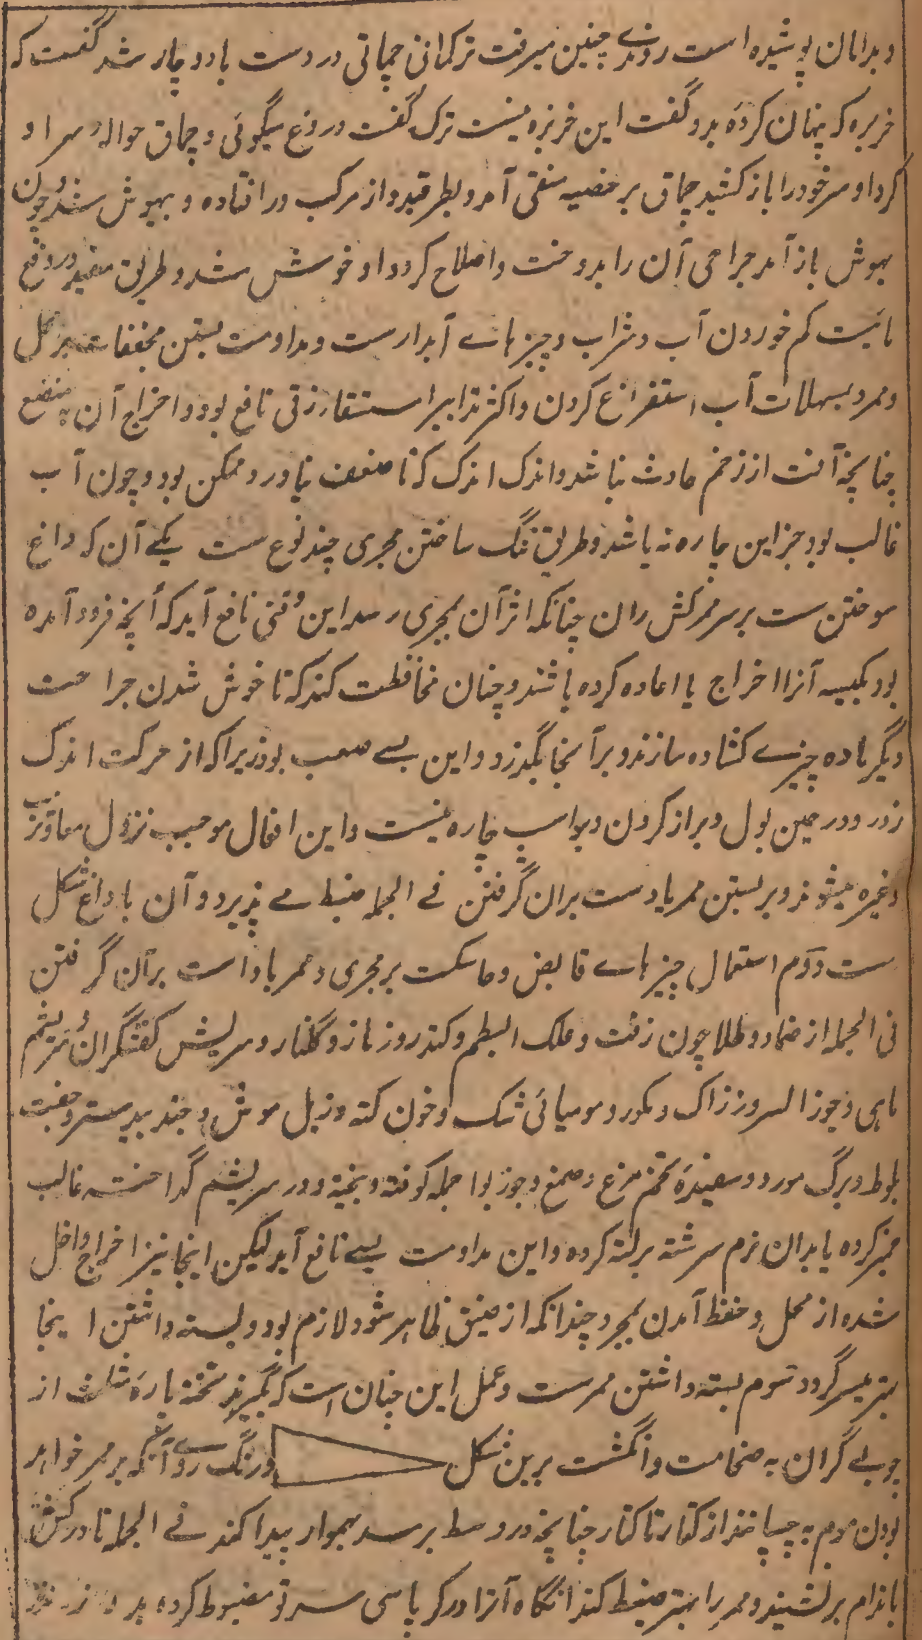 وبدامان پوشیده است روزے چنین میرفت ترکمانی چماتی در دست با دوچار شد گفت که
خربزه که پنهان کردهٔ بدو گفت این خربزه نیست ترک گفت دروغ میگوئی و چماق حواله سر او
کرد او سر خود را باز کشید چماق بر خصیه سفتی آمد و بطرقید و از مرکب در افتاده و بیهوش شد و چون
بهوش باز آمد جراحی آن را بدوخت و اصلاح کرد و او خوش شد و طریق مفید در دفع
مائیت کم خوردن آب و شراب و چیز ہاے آبدارست و مداومت بستن مجففات بر محل
و ممر و بمسهلات آب استفراغ کردن و اکثر تدابیر استسقا زقی نافع بود و اخراج آن بمبضع
چنانچه آفت از زخم حادث نباشد و اندک اندک که تا ضعف نیاورد ممکن بود و چون آب
غالب بود جز این چاره نه باشد و طریق تنگ ساختن مجری چند نوع ست یکے آن که داغ
سوختن ست بر سر ممر کش ران چنانکه اثر آن بمجری رسد این وقتی نافع آید که آنچه فرود آمده
بود بکیسه آنرا اخراج یا اعاده کرده باشند و چنان محافظت کنند که تا خوش شدن جراحت
دیگر باده چیزے کشاده سازند و بر آنجا بگذرد و این بسے صعب بود زیراکه از حرکت اندک
زور و در حین بول و براز کردن دبواب چاره نیست و این افعال موجب نزول معاوثرب
وغیره میشوند و بر بستن ممر یا دست بران گرفتن فے الجمله ضبط مے پذیرد و آن با داغ مشکل
ست دوم استعمال چیز ہاے قابض و ماسکت بر مجری و ممر با دواست بر آن گرفتن
فی الجمله از ضماد و طلا چون زفت و علک البطم و کندر و زمازو و گلنار و سریش کفشگران و سریشم
ماہی و جوز السرو و زاک و مکور و مومیائی شک و خون کته و زبل موش و جند بیدستر و جفت
بلوط و برگ مورد و سفیدهٔ تخم مرغ و صمغ و جوز بوا جمله کوفته و بیخته و در سریشم گداخته غالب
خمر کرده یا بدان نرم سرشته بر لته کرده و این مداومت بسے نافع آید لیکن اینجا نیز اخراج داخل
شده از محل و حفظ آمدن بمجرد چندانکه از ضیق ظاهر شود لازم بود و بسته داشتن اینجا
بہتر میسر گردد سوم بسته داشتن ممرست و عمل این چنان است که بگیرند تخته پارهٔ مثلث از
چوبے گران به ضخامت دو انگشت برین شکل و رنگ روے آنکه بر ممر خواهد
بودن موم به چسپانند از کنار تا کنار چنانچه در وسط بر سد ہموار پیدا کند فے الجمله تا در کش
باندام بر نشیند و ممر را بهتر ضبط کند انگاه آنرا در کرپاسی سر تو مضبوط کرده بدوزند